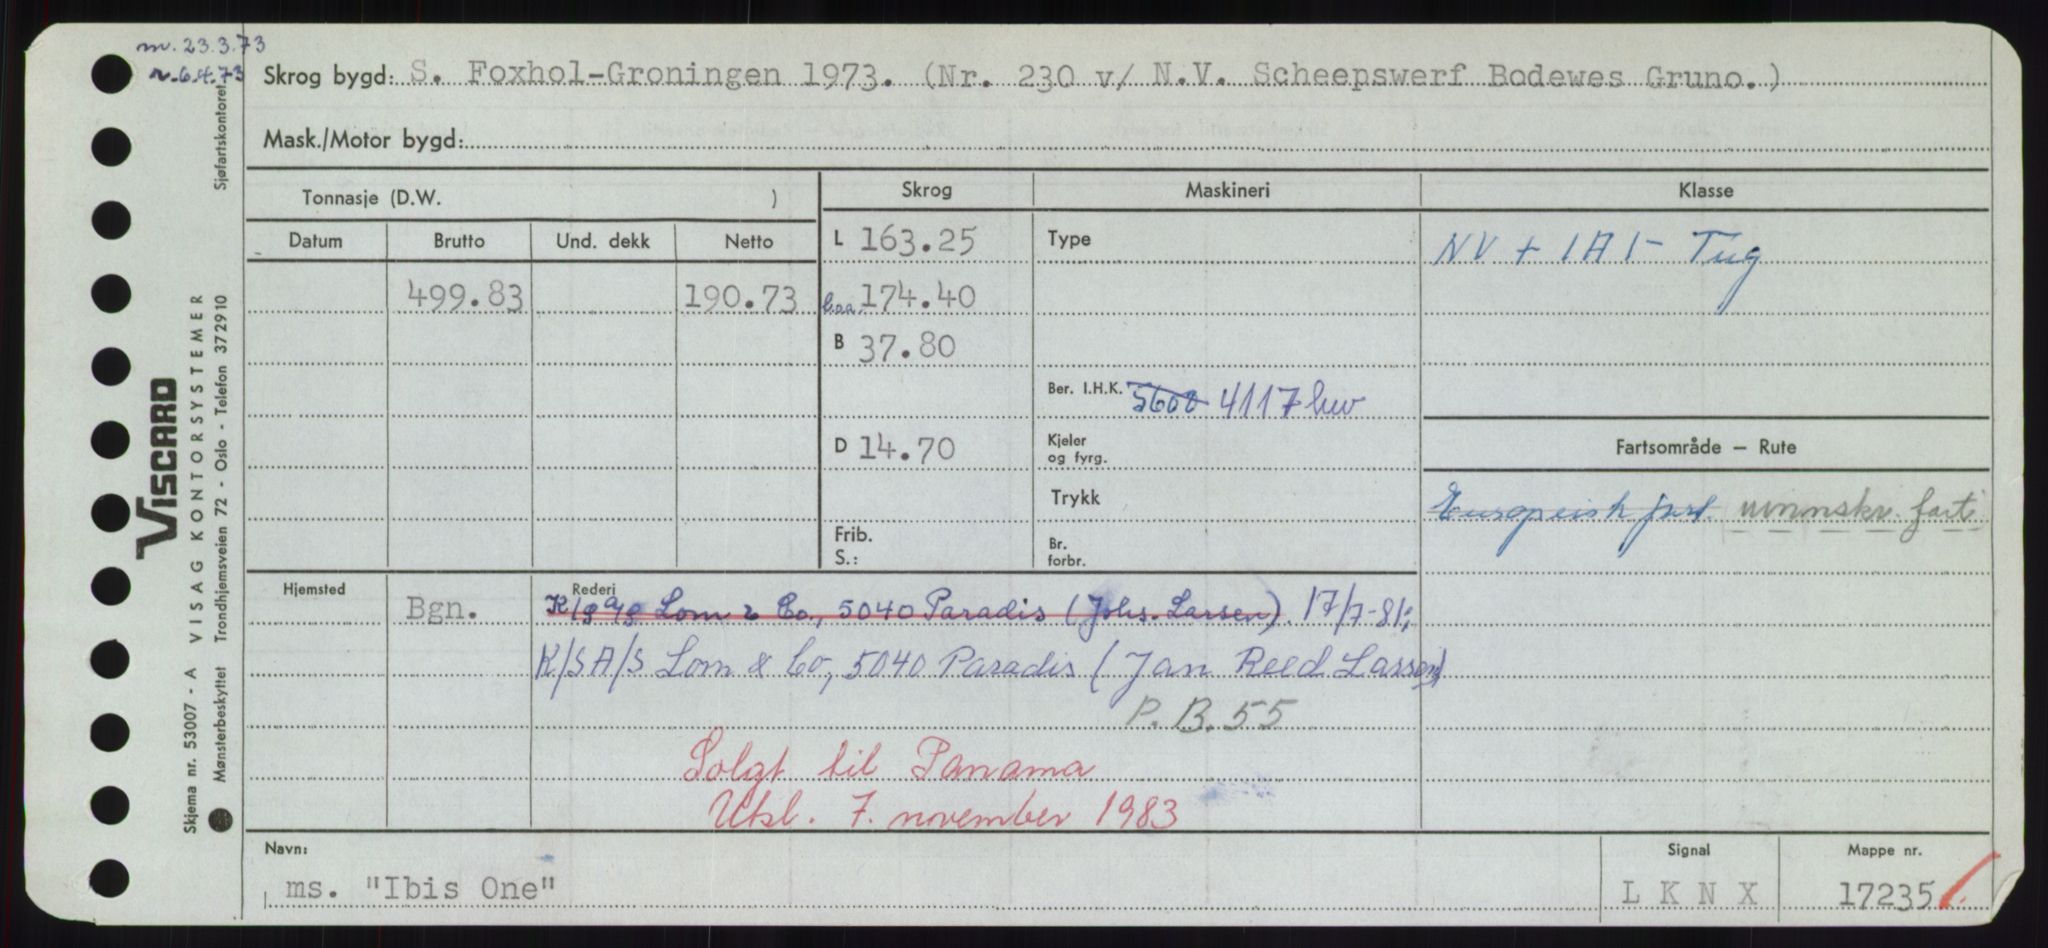 m. 23.3.73
r. 6.4.73
Skrog bygd: S. Foxhol-Groningen 1973. (Nr. 230 v/ N.V. Scheepswerf Bodewes Gruno.)
Mask./Motor bygd:
Tonnasje (D.W. )
Skrog Maskineri Klasse
Datum Brutto Und. dekk Netto
L 163.25 Type NV + 1A1- Tug
499.83 190.73 Loa. 174.40
B 37.80
Ber. I.H.K. 5600 4117 bhv
D 14.70 Kjeler og fyrg. Fartsområde – Rute
Trykk Europeisk fart. uinnskr. fart
Frib.
S.: Br. forbr.
Hjemsted Rederi
Bgn. K/S A/S Lom & Co., 5040 Paradis (Johs. Larsen). 17/7-81:
K/S A/S Lom & Co, 5040 Paradis (Jan Reed Larsen)
P.B. 55
Solgt til Panama
Utsl. 7. november 1983
Navn: Signal Mappe nr.
ms. "Ibis One" LKNX 17235
VISCARD
Skjema nr. 53007 - A VISAG KONTORSYSTEMER
Mønsterbeskyttet Trondhjemsveien 72 - Oslo - Telefon 372910 Sjøfartskontoret